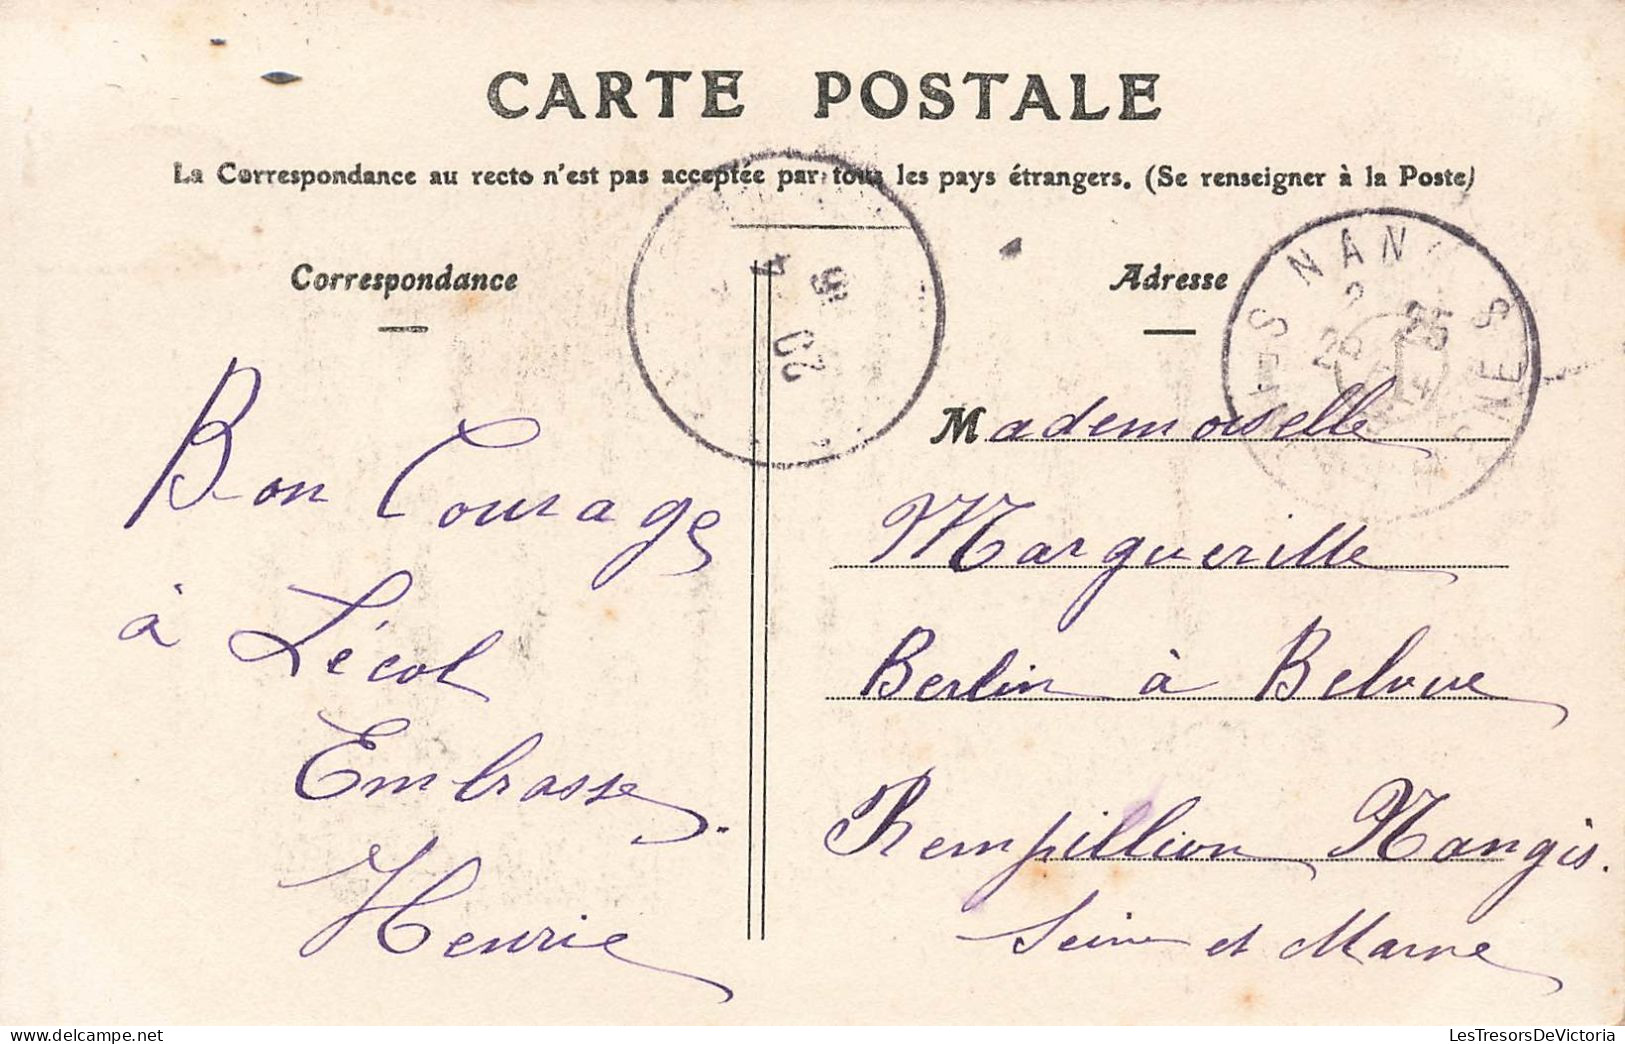 CARTE POSTALE
La Correspondance au recto n'est pas acceptée par tous les pays étrangers. (Se renseigner à la Poste)
Correspondance
Bon Courage
à Lécol
Embrasse.
Henrie
Adresse
Mademoiselle
Margueritte
Berlin à Belvue
Rempillion Nangis.
Seine et Marne
LesTresorsDeVictoria